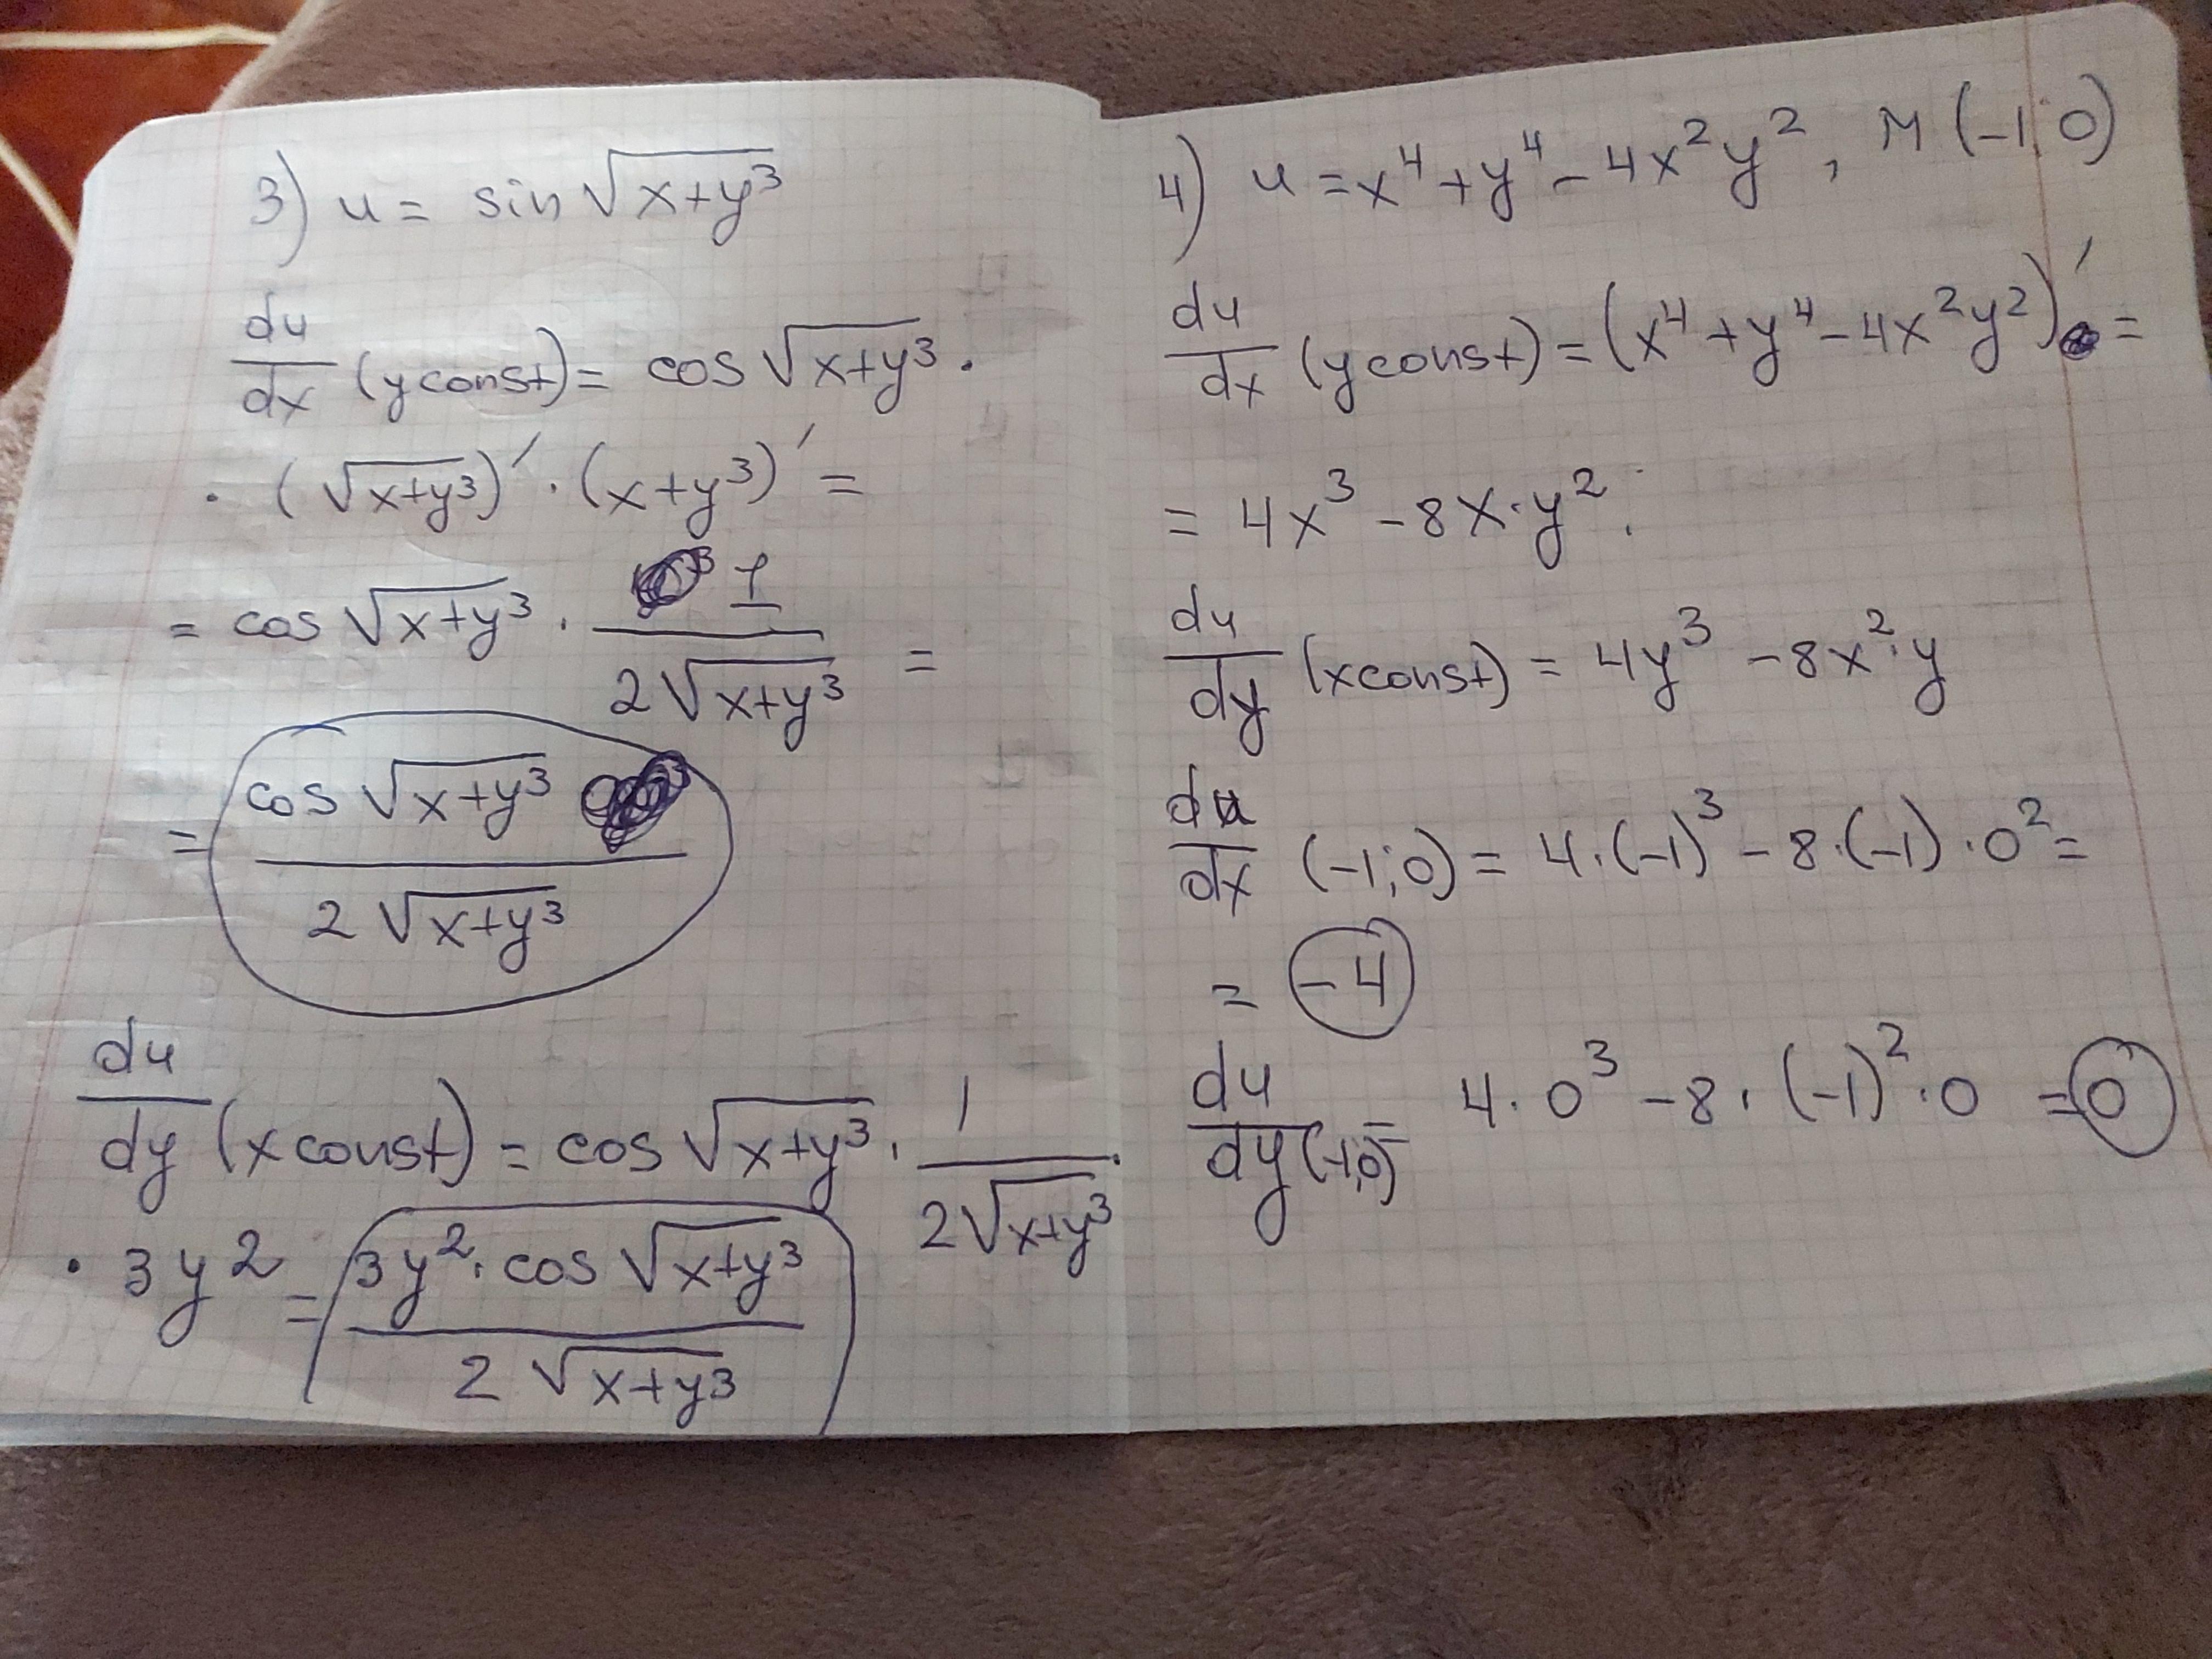 3) u = sin √(x+y³)
du/dx (y const) = cos √(x+y³) ·
· (√(x+y³))′ · (x+y³)′ =
= cos √(x+y³) · 1/(2√(x+y³)) =
= cos √(x+y³) / (2√(x+y³))
du/dy (x const) = cos √(x+y³) · 1/(2√(x+y³)) ·
· 3y² = 3y² · cos √(x+y³) / (2√(x+y³))
4) u = x⁴ + y⁴ - 4x²y², M (-1; 0)
du/dx (y const) = (x⁴ + y⁴ - 4x²y²)′ =
= 4x³ - 8x · y²
du/dy (x const) = 4y³ - 8x² · y
du/dx (-1; 0) = 4 · (-1)³ - 8 · (-1) · 0² =
= -4
du/dy (-1; 0) = 4 · 0³ - 8 · (-1)² · 0 = 0